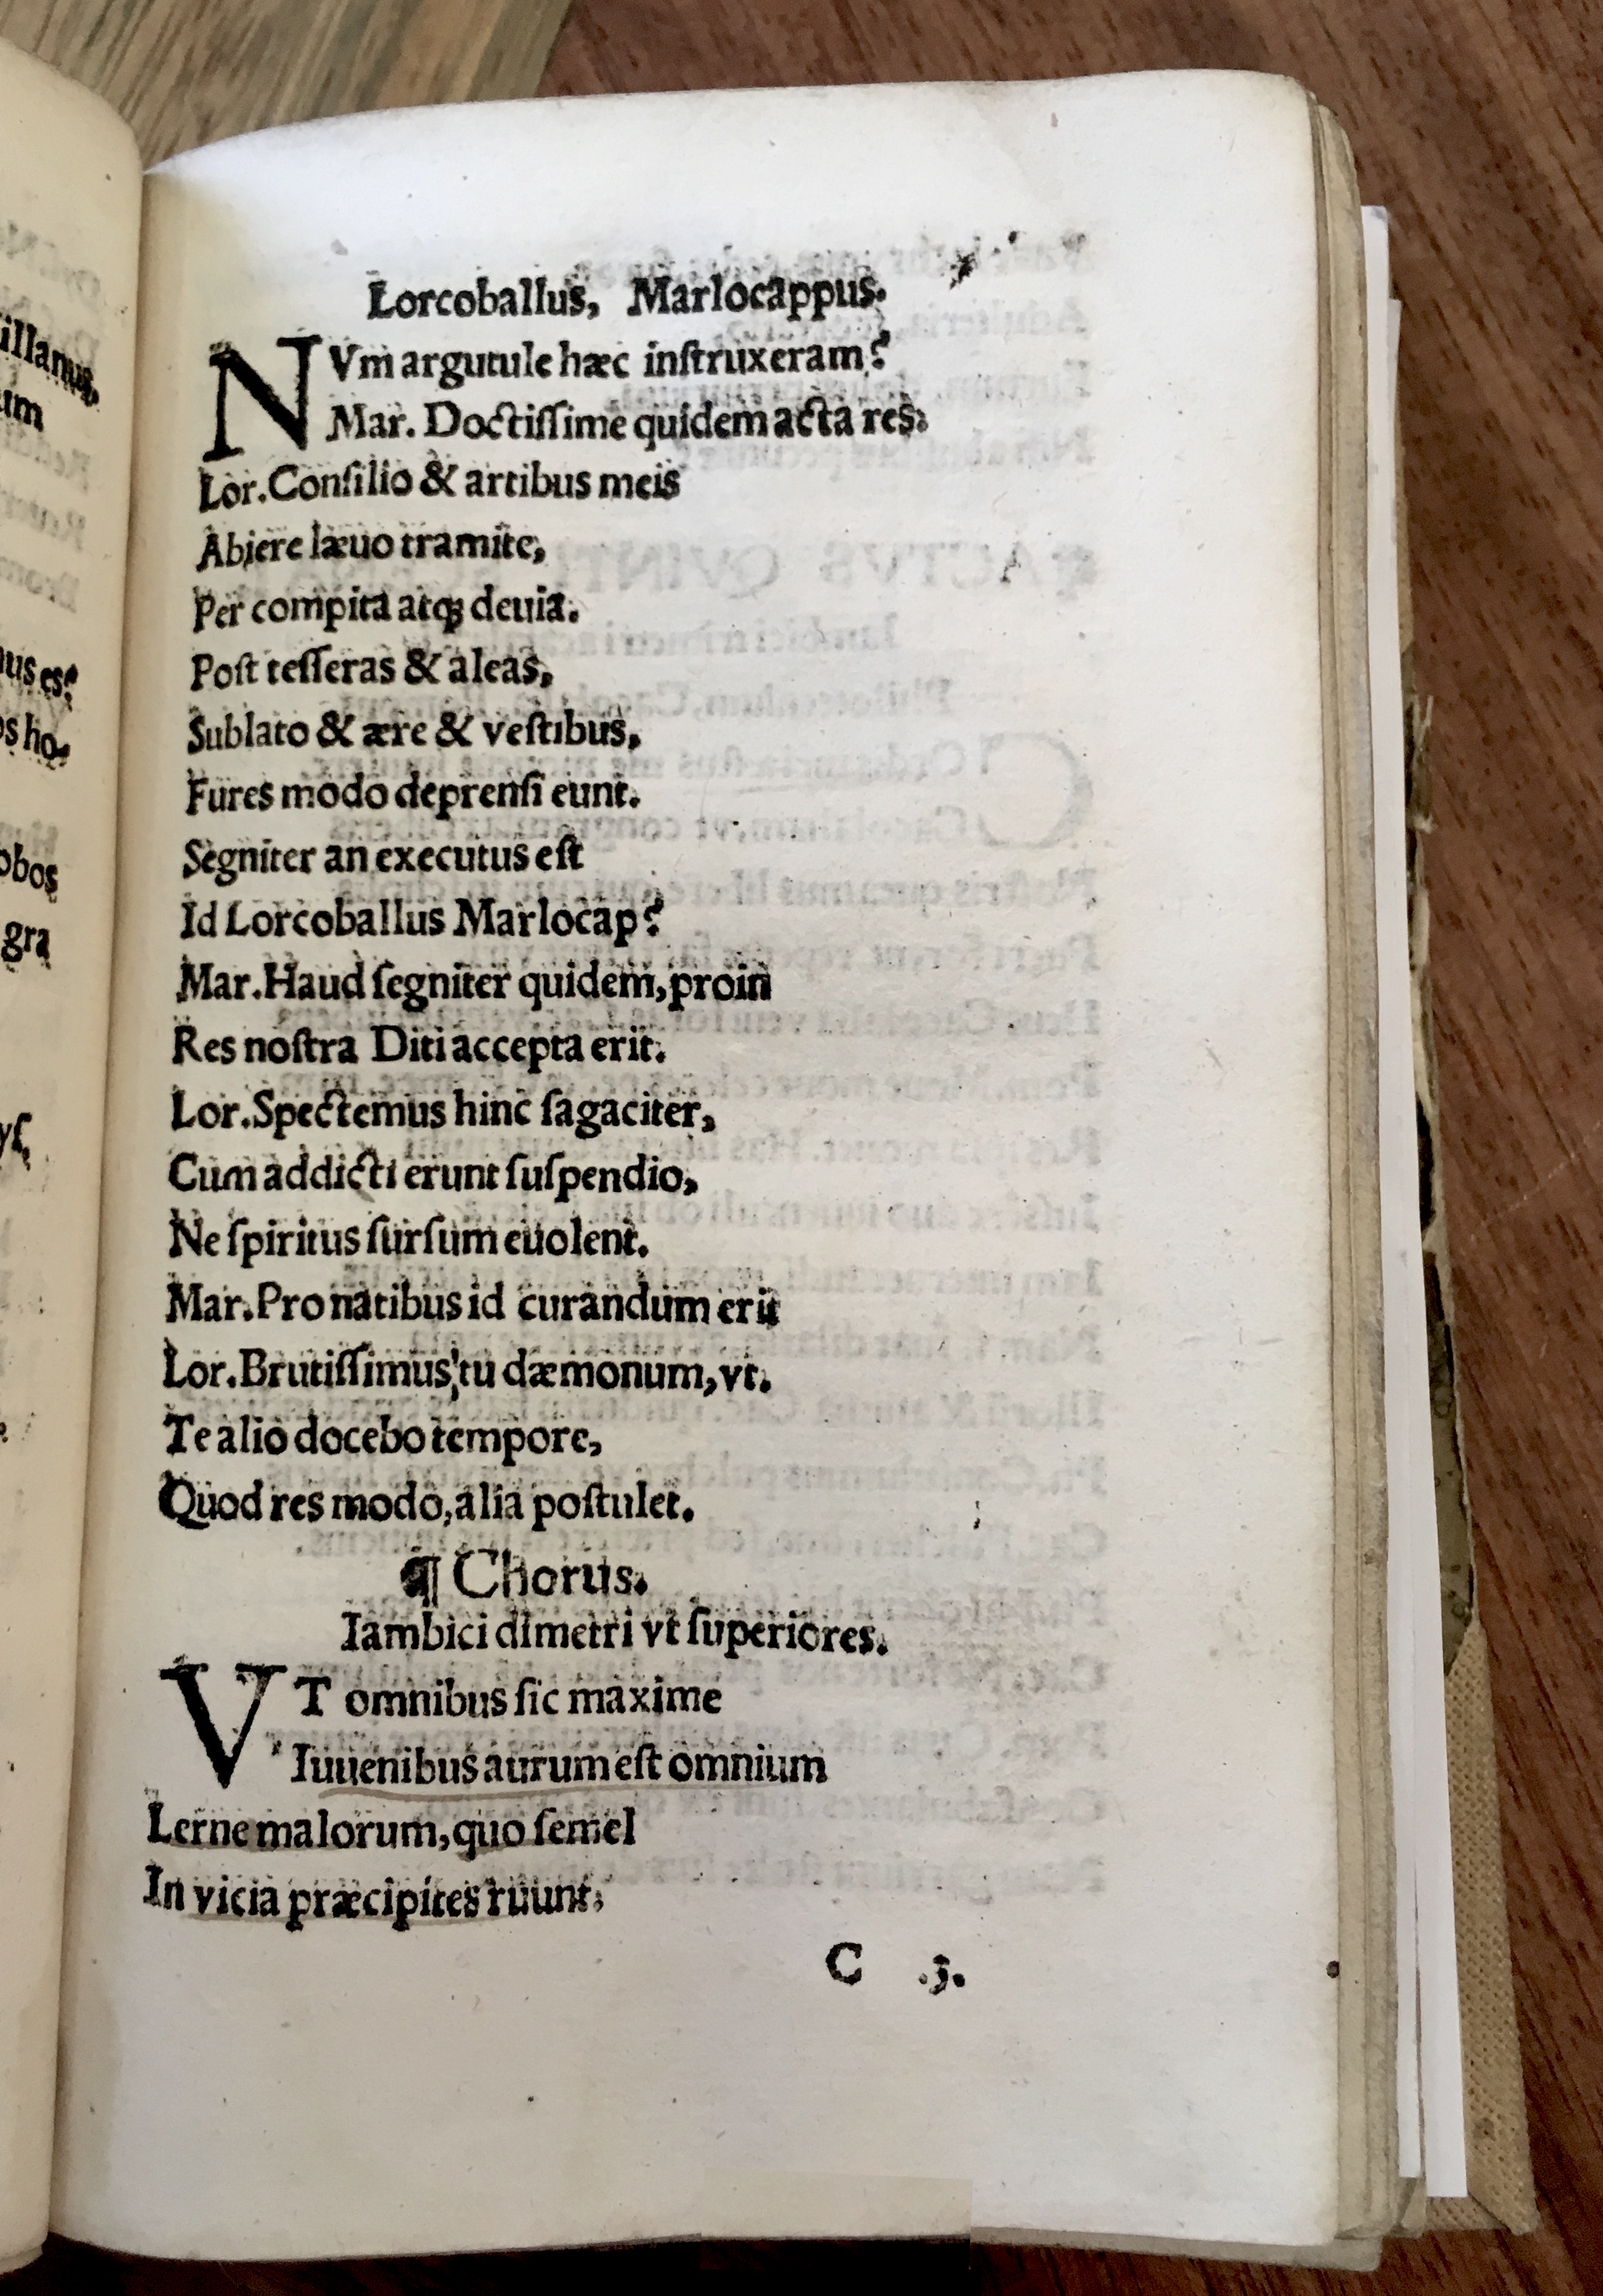 illanus.
um
us es?
os ho-
obos
gra
Lorcoballus, Marlocappus.
NVm argutule hæc inſtruxeram?
Mar. Doctiſſime quidem acta res.
Lor. Conſilio & artibus meis
Abiere læuo tramite,
Per compita atq; deuia.
Poſt teſſeras & aleas,
Sublato & ære & veſtibus,
Fures modo deprenſi eunt.
Segniter an executus eſt
Id Lorcoballus Marlocap?
Mar. Haud ſegniter quidem, proin
Res noſtra Diti accepta erit.
Lor. Spectemus hinc ſagaciter,
Cum addicti erunt ſuſpendio,
Ne ſpiritus ſurſum euolent.
Mar. Pro natibus id curandum erit
Lor. Brutiſſimus, tu dæmonum, vt.
Te alio docebo tempore,
Quod res modo, alia poſtulet.
¶ Chorus.
Iambici dimetri vt ſuperiores.
VT omnibus ſic maxime
Iuuenibus aurum eſt omnium
Lerne malorum, quo ſemel
In vicia præcipites ruunt,
C .3.